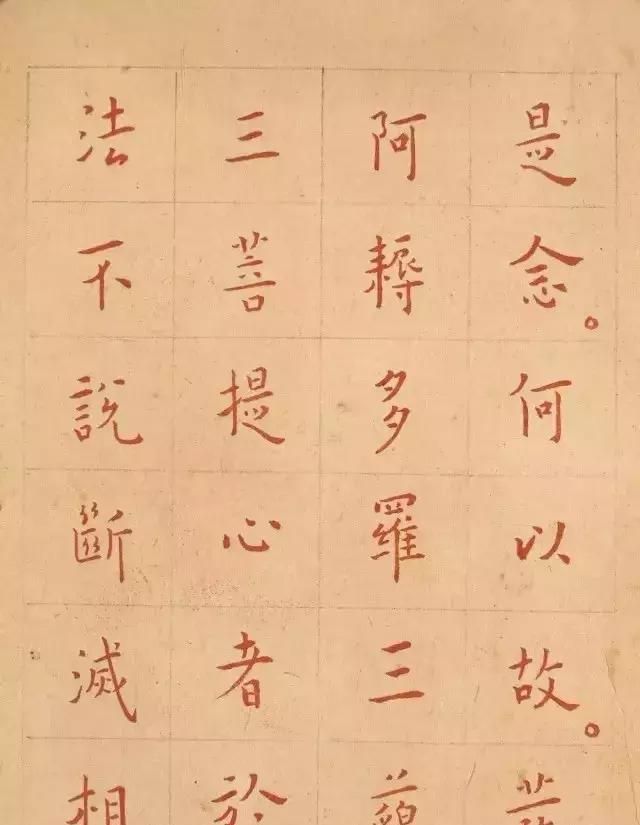 是念。何以故。
阿耨多羅三藐
三菩提心者於
法不說斷滅相